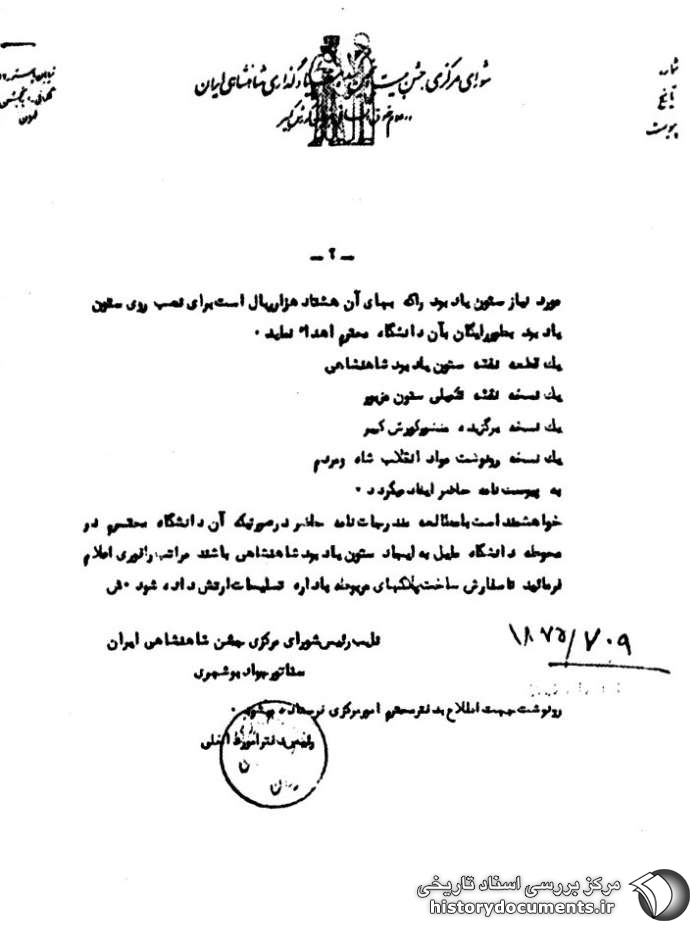 شماره
تاریخ
پیوست
شورای مرکزی جشن بنیادگذاری شاهنشاهی ایران
تهران
- ۲ -
مورد نیاز ستون یاد بود راکه بهای آن هشتاد هزارریال است برای نصب روی ستون
یاد بود بطوررایگان بآن دانشگاه محترم اهداء نماید ۰
یك قطعه نقشه ستون یاد بود شاهنشاهی
یك نسخه نقشه تکمیلی ستون مزبور
یك نسخه برگزیده منشورکورش کبیر
یك نسخه رونوشت مواد انقلاب شاه ومردم
به پیوست نامه حاضر ایفاد میگردد ۰
خواهشمند است بامطالعه مندرجات نامه حاضر درصورتیکه آن دانشگاه محترم در
محوطه دانشگاه مایل به ایجاد ستون یاد بود شاهنشاهی باشند مراتب رافوری اعلام
فرمائید تاسفارش ساخت پلاکهای مربوطه باداره تسلیحات ارتش داده شود ۰ش
نایب رئیس شورای مرکزی جشن شاهنشاهی ایران
سناتور جواد بوشهری
۱۸۷۵/۷۰۹
رونوشت جهت اطلاع بدفتر محترم امور مرکزی فرستاده میشود ۰
رئیس دفتر امور داخلی
مرکز بررسی اسناد تاریخی
historydocuments.ir